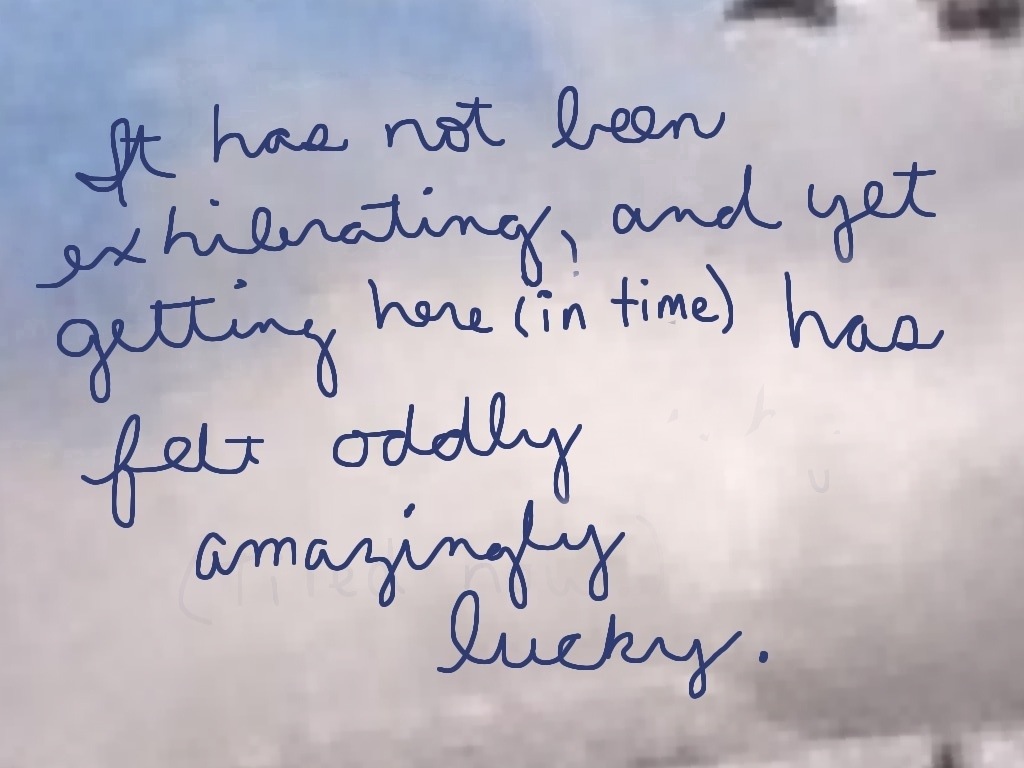 It has not been
exhilerating, and yet
getting here (in time) has
felt oddly
amazingly
lucky.